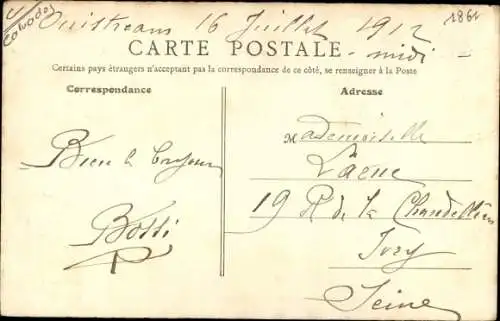 Calvados
1861
Ouistreham 16 Juillet 1912
- midi -
CARTE POSTALE
Certains pays étrangers n'acceptant pas la correspondance de ce côté, se renseigner à la Poste
Correspondance
Adresse
Bien le bonjour
Botti
Mademoiselle
19 R de la Chandelliers
Ivry
Seine